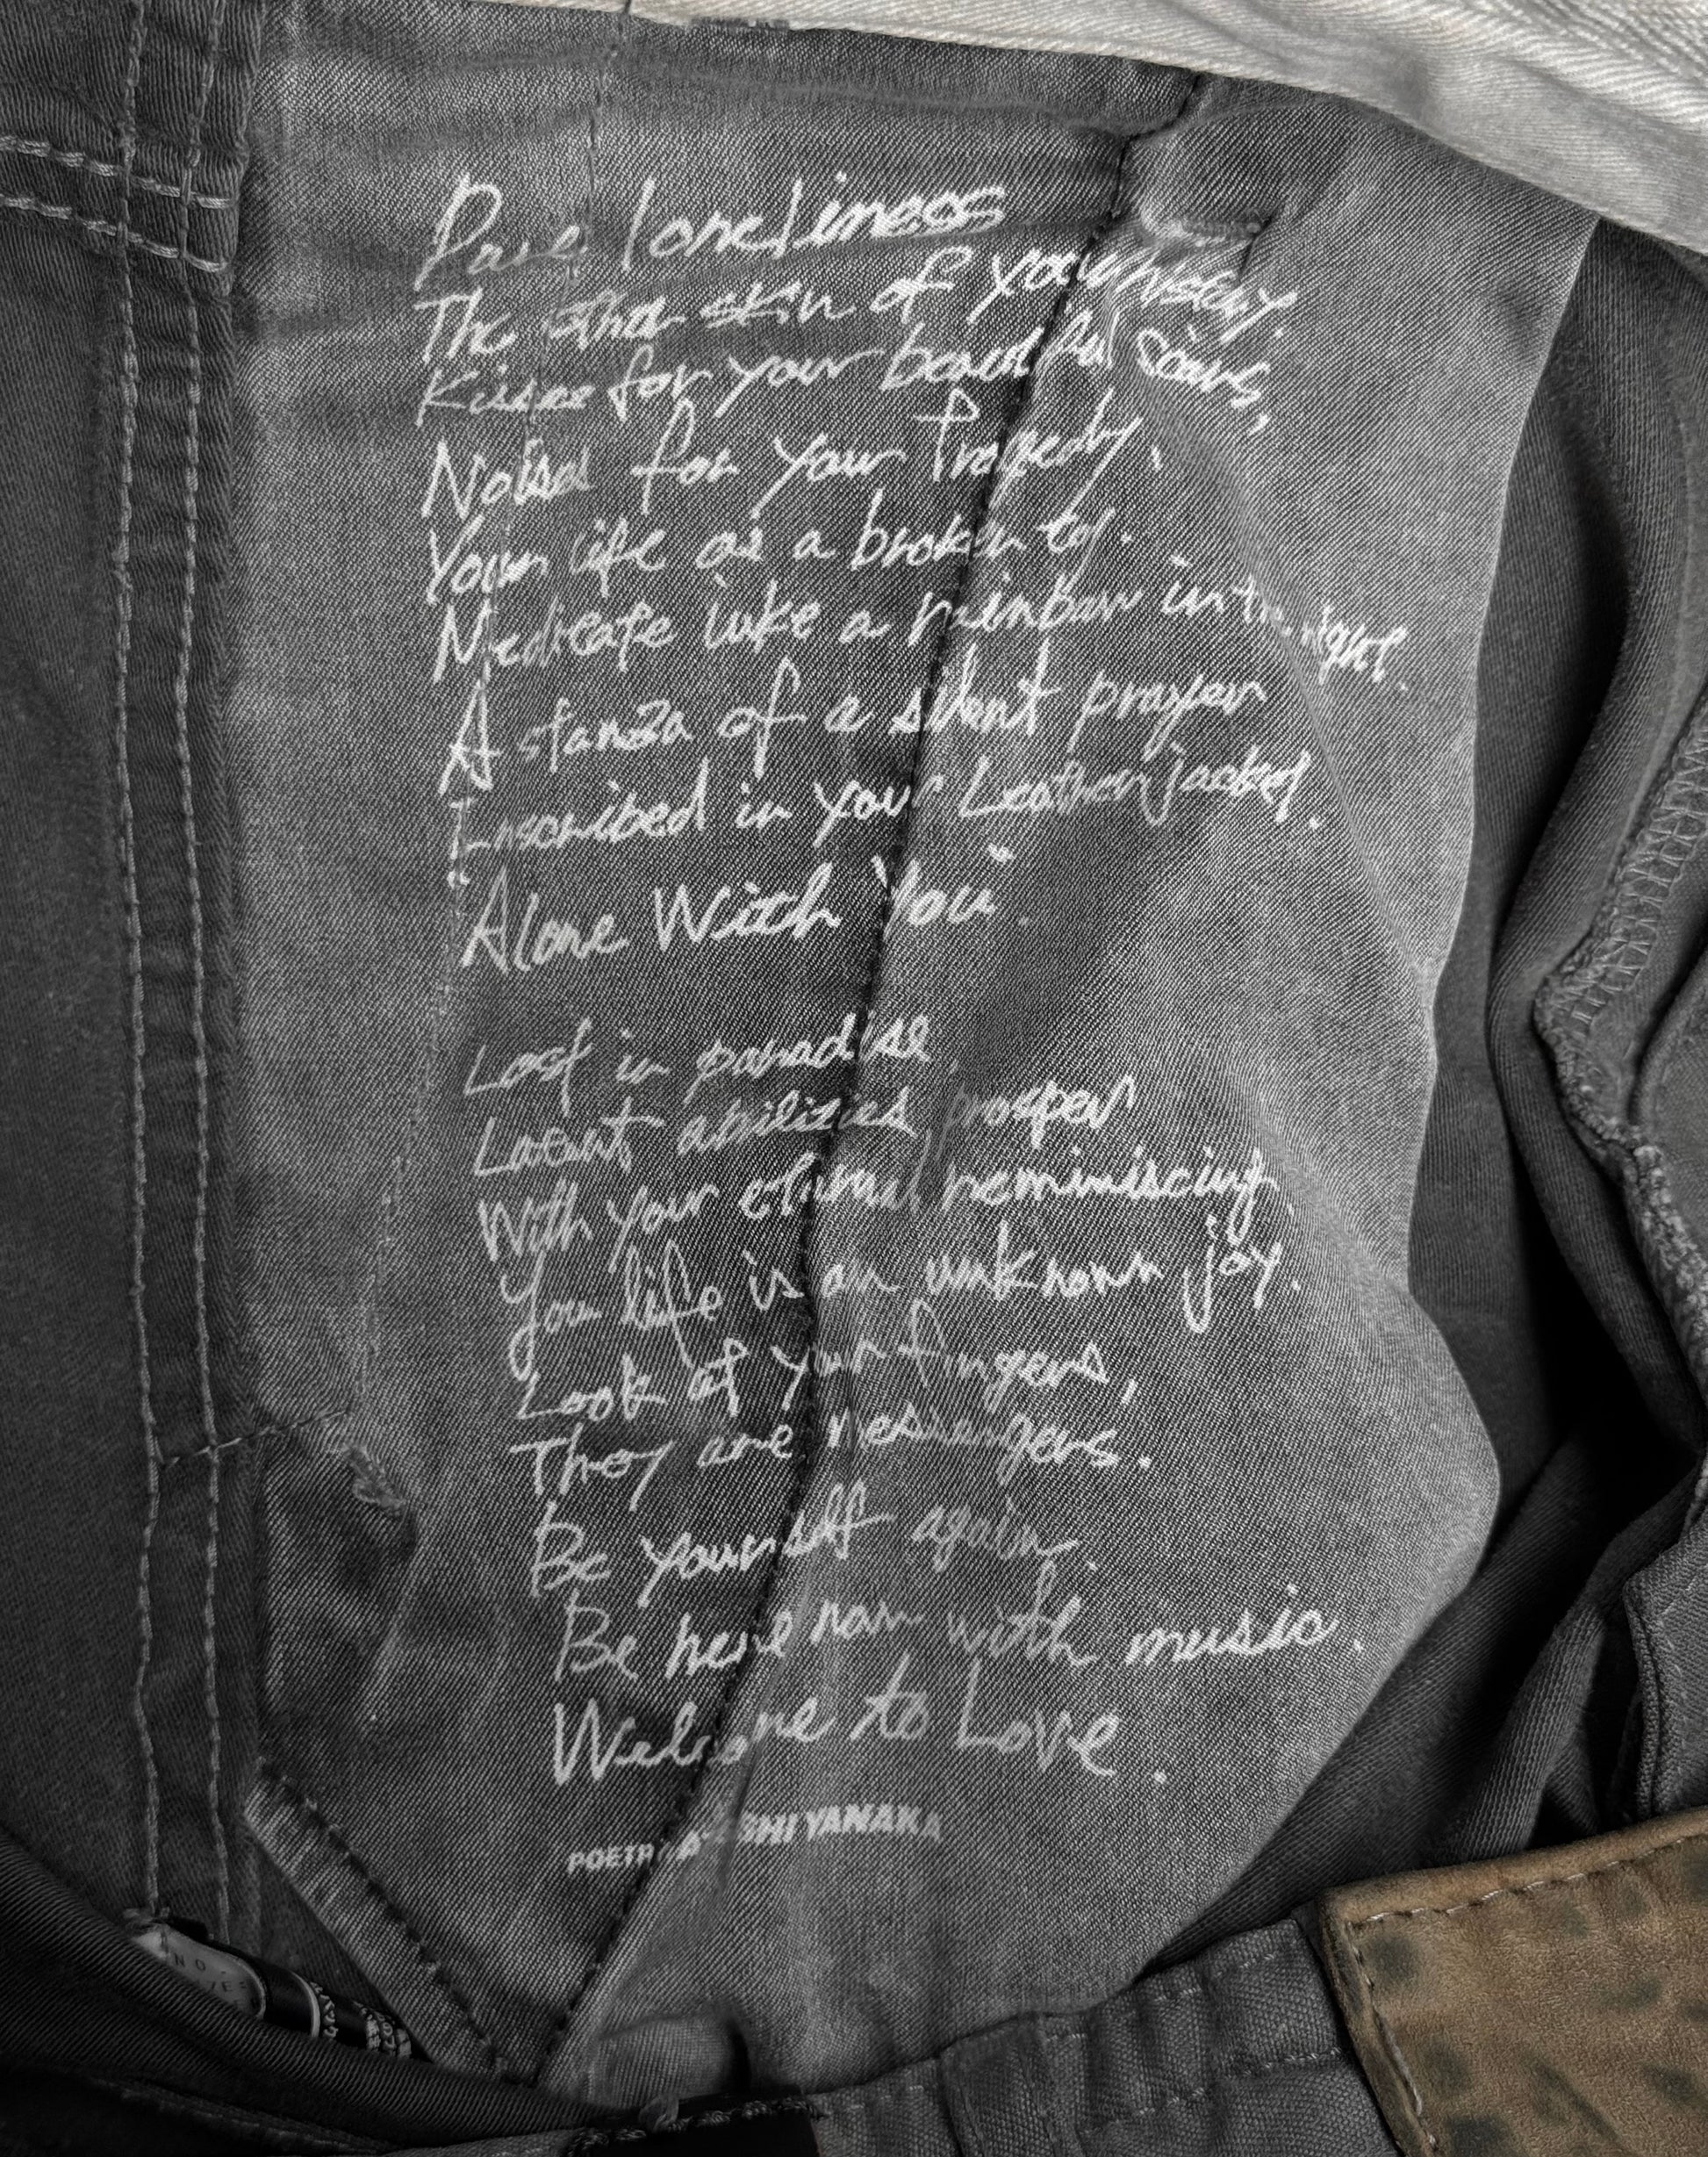 Pure loneliness
The other skin of your misery.
Kisses for your beautiful Scars,
Noises for your Tragedy,
Your life as a broken toy.
Medicate like a rainbow in the night.
A stanza of a silent prayer
Inscribed in your Leather jacket.
"Alone With You"
Lost in paradise,
Latent abilities prosper
With your eternal reminiscing.
Your life is an unknown joy.
Look at your fingers,
They are messengers.
Be yourself again.
Be here now with music.
Welcome to Love.
POETRY SHI YANAKA